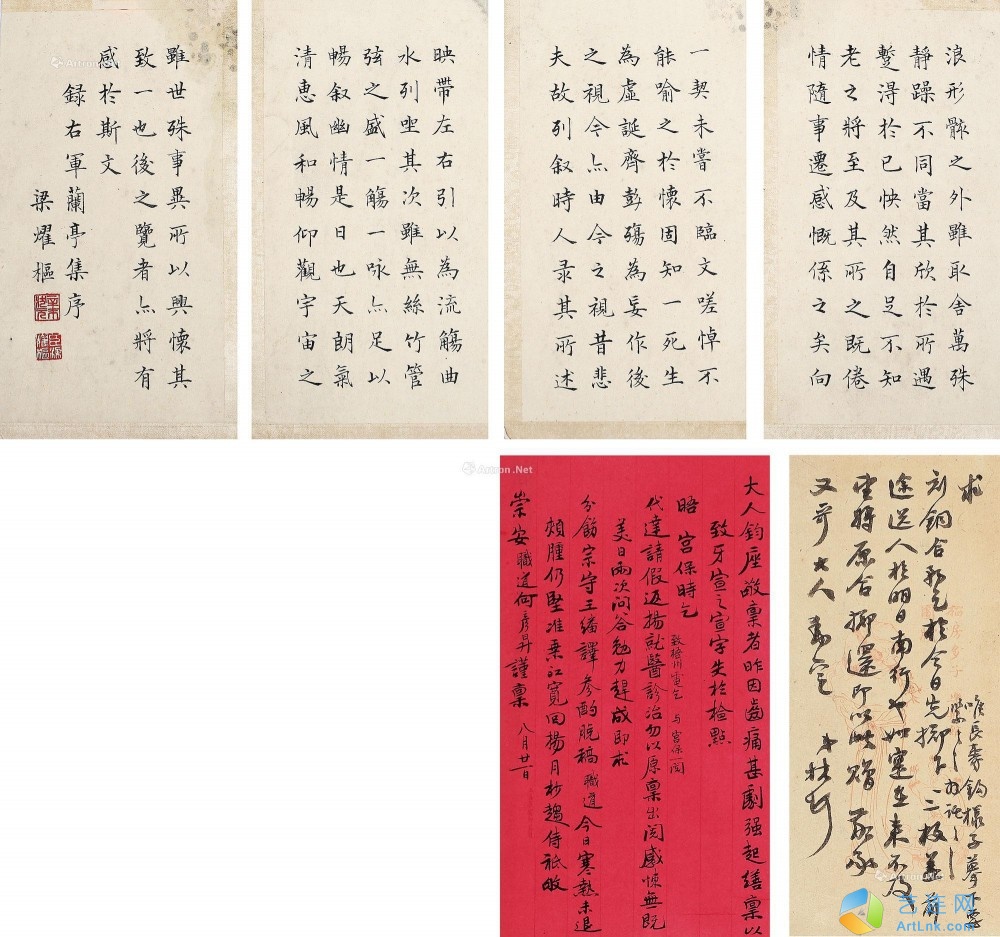 浪形骸之外雖取舍萬殊
靜躁不同當其欣於所遇
蹔得於已怏然自足不知
老之將至及其所之既倦
情隨事遷感慨係之矣向
一契未嘗不臨文嗟悼不
能喻之於懷固知一死生
為虛誕齊彭殤為妄作後
之視今亦由今之視昔悲
夫故列叙時人录其所述
映帶左右引以為流觴曲
水列坐其次雖無絲竹管
弦之盛一觴一咏亦足以
暢叙幽情是日也天朗氣
清惠風和暢仰觀宇宙之
雖世殊事異所以興懷其
致一也後之覽者亦將有
感於斯文
録右軍蘭亭集序
梁燿樞
求
於今日先擲下二枚
途送人於明日南行
將原合擲還即以此贈
又哥大人
大人鈞座敬稟者昨因齒痛甚劇强起繕稟以
致牙宣之宣字失於檢點
晤宮保時乞
与宮保一閱
代達請假返揚就醫診治勿以原稟出閱感悚無既
美日兩次問答勉力趕成即求
分飭宗守王繙譯參酌脫稿職道今日寒熱未退
頰腫仍堅准乘江寬回揚月杪趨侍祗敂
崇安職道何彥昇謹稟 八月廿一日
Artron.Net
艺旌网
ArtLnk.com